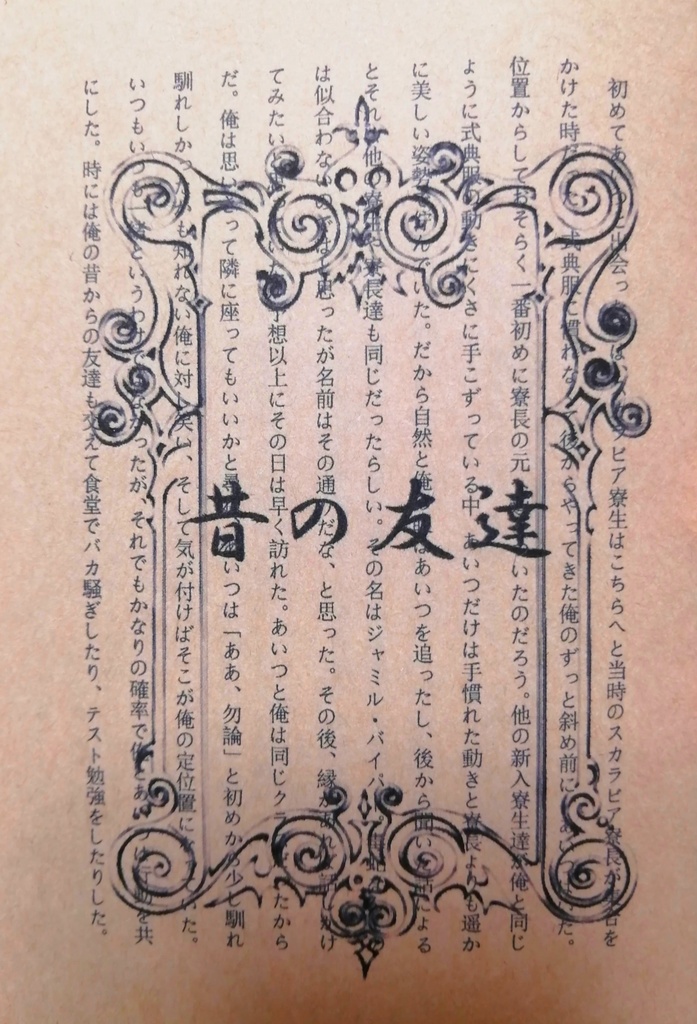 昔の友達
初めてあいつに出会っ ビア寮生はこちらへと当時のスカラビア寮長が 合を
かけた時だ 式典服に慣れな 後からやってきた俺のずっと斜め前に あいつ た。
位置からしておそらく一番初めに寮長の元 いたのだろう。他の新入寮生達が俺と同じ
ように式典服の動きにくさに手こずっている中、あいつだけは手慣れた動きと寮長よりも遥か
に美しい姿勢 んでいた。だから自然と俺 はあいつを追ったし、後から聞いた話による
とそれ 他の寮生や寮長達も同じだったらしい。その名はジャミル・バイパー
は似合わない では 思ったが名前はその通りだな、と思った。その後、縁があれ 話しかけ
てみたいと思 いた 予想以上にその日は早く訪れた。あいつと俺は同じクラ たから
だ。俺は思い って隣に座ってもいいかと尋 いつは「ああ、勿論」と初めから少し馴れ
馴れしかった も知れない俺に対し笑い、そして気が付けばそこが俺の定位置に いた。
いつもいつも一 というわけ かったが、それでもかなりの確率で俺とあ は行動を共
にした。時には俺の昔からの友達も交えて食堂でバカ騒ぎしたり、テスト勉強をしたりした。